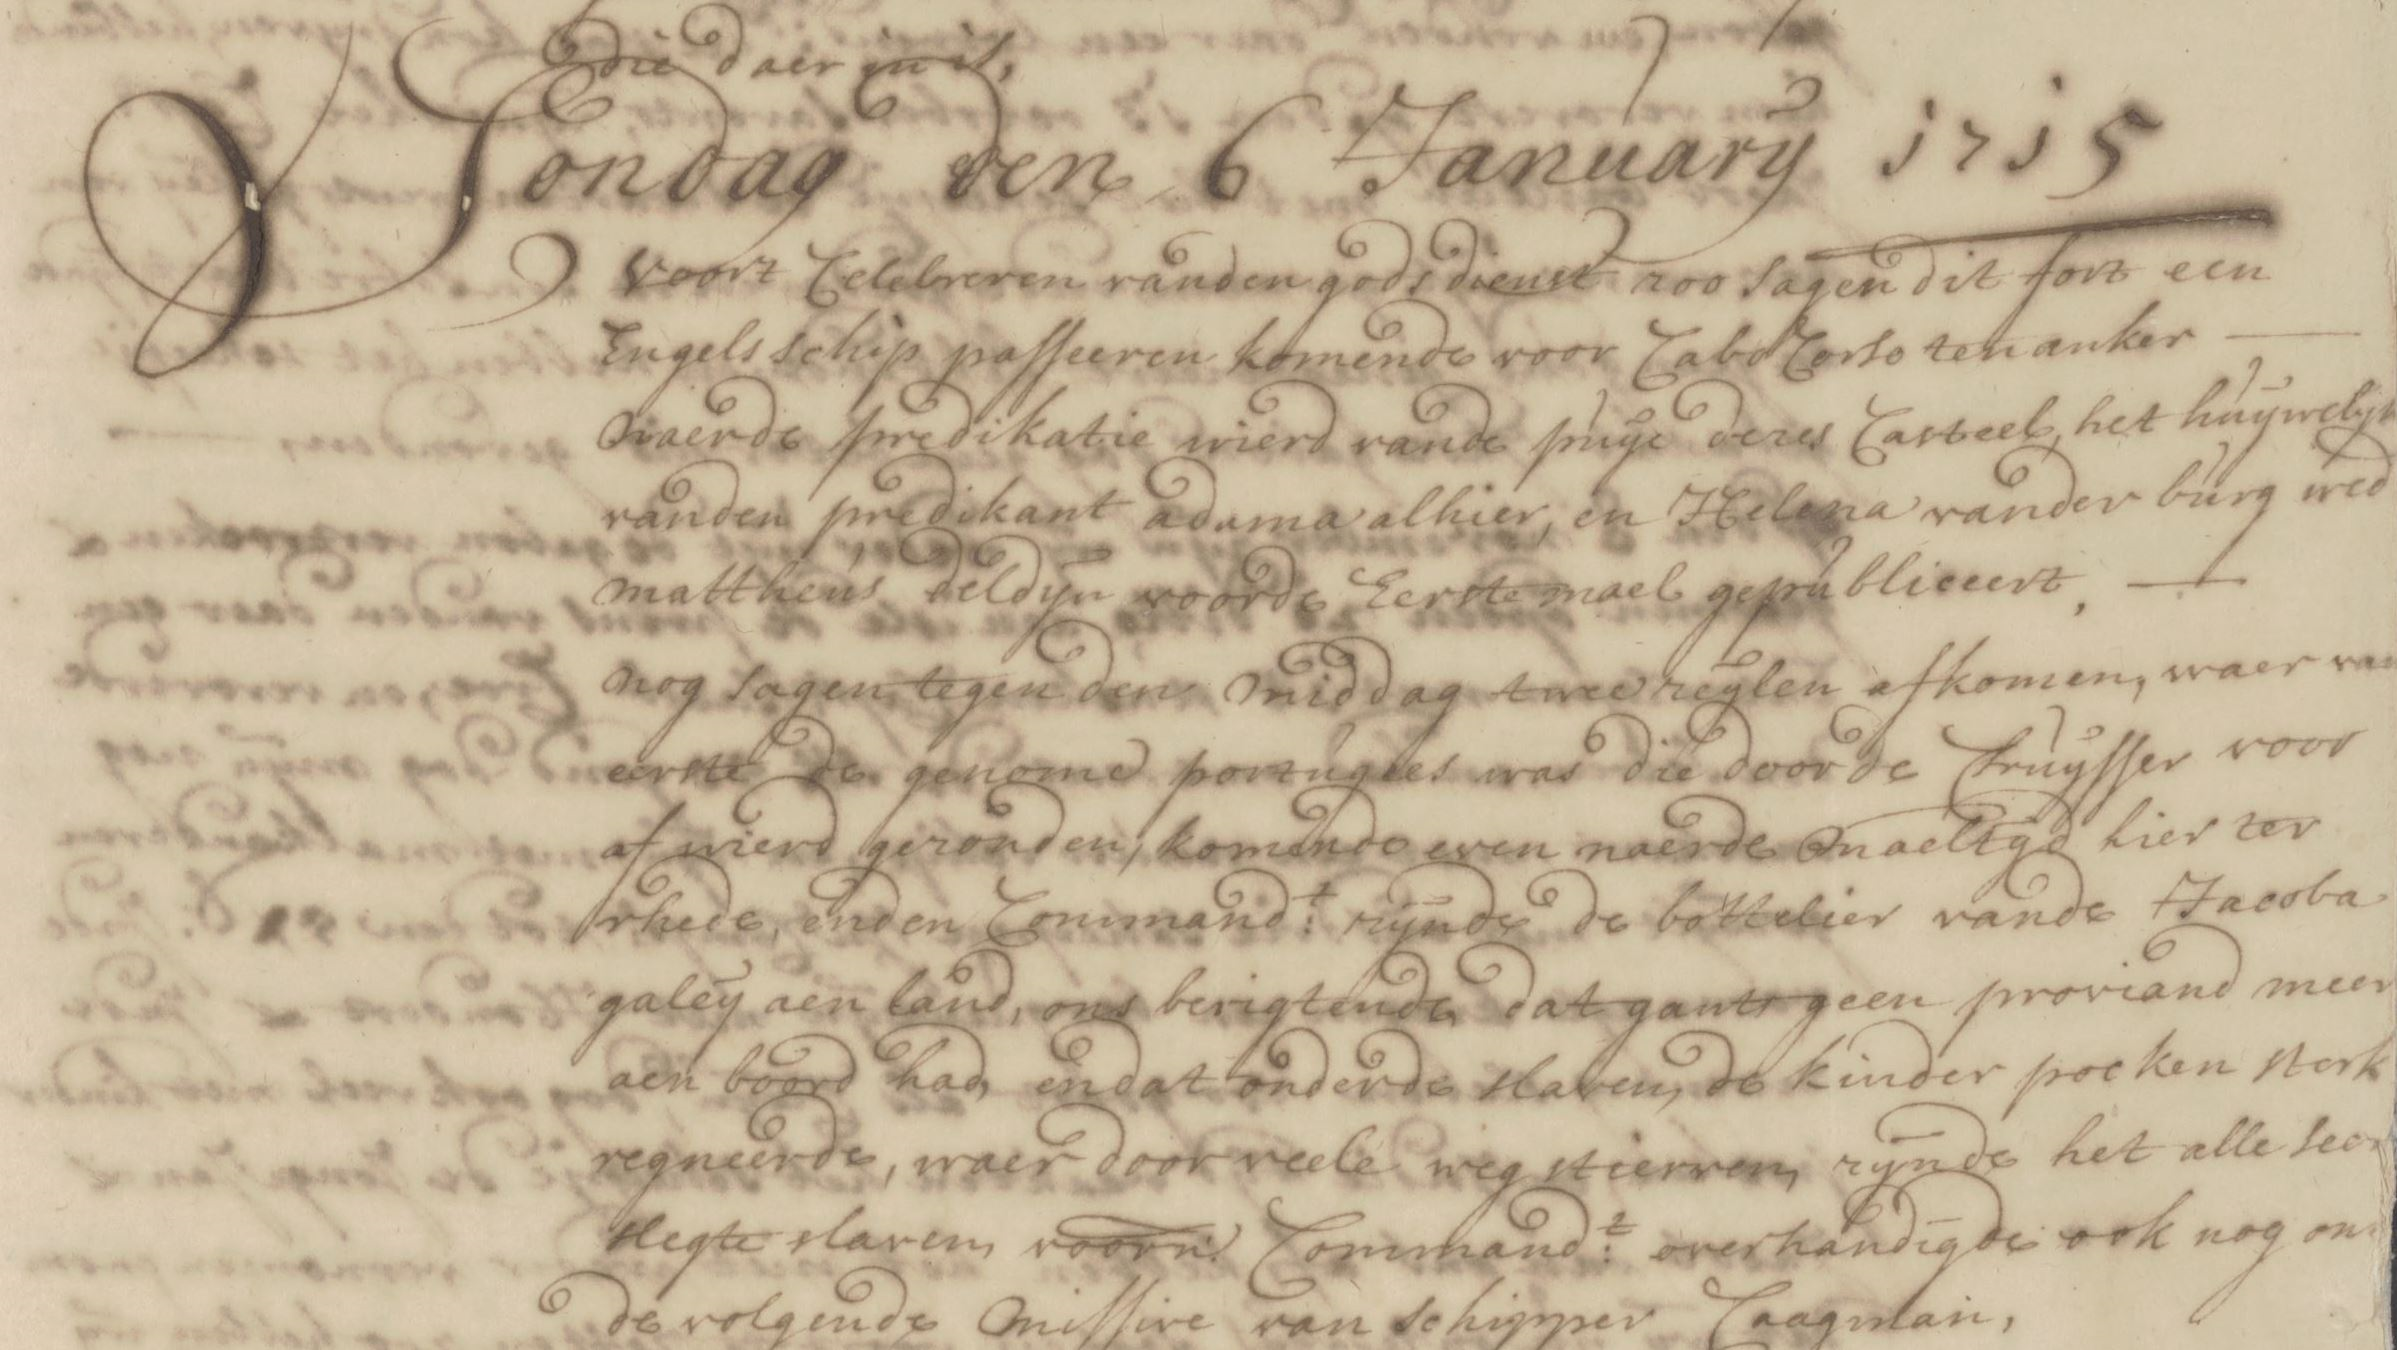 die daer in is,
Sondag den 6 January 1715
Voort Celebreren vanden godsdienst zoo sagen dit fort een
Engels schip passeeren komende voor Cabo Corso ten anker
naerde predikatie wierd vande puye deses Casteel, het huywelyk
vanden predikant adama alhier, en Helena vander burg wed
mattheus deldyn voorde Eerstemael gepubliceert,
nog sagen tegen den middag twee zeylen afkomen, waer van
eerste de genome portugees was die doorde Cruysser voor
af wierd gezonden, komende even naerde maeltyd hier ter
rhede, enden Command:t zynde de bottelier vande Jacoba
galey aen land, ons berigtende dat gants geen proviand meer
aen boord had, en dat onderde slaven, de kinder pocken sterk
regneerde, waer door veele weg stierven, zynde het alle seer
slegte slaven, voorn: Command:t overhandigde ook nog ons
de volgende missive van schipper Caagman,